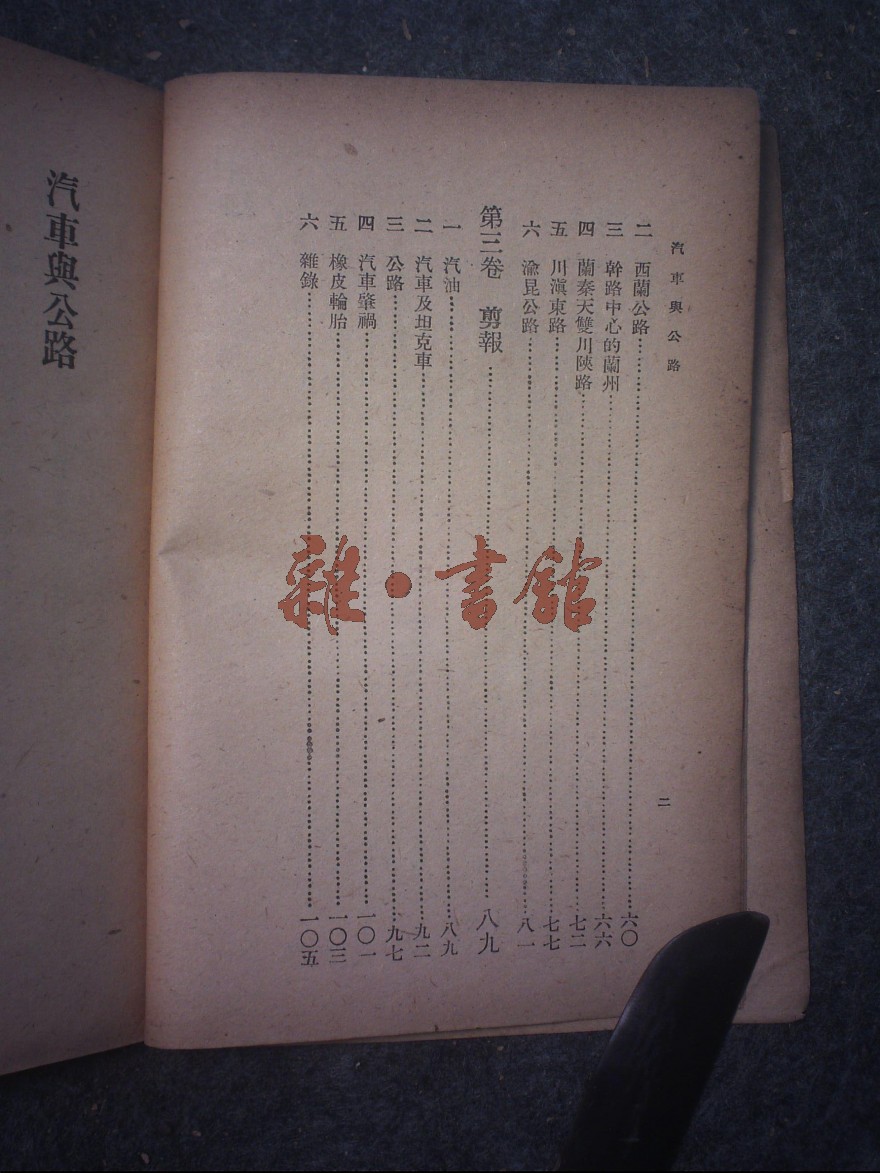 汽車與公路
二
二 西蘭公路 六〇
三 幹路中心的蘭州 六六
四 蘭秦天雙川陝路 七二
五 川滇東路 七七
六 渝昆公路 八一
第三卷 剪報 八九
一 汽油 八九
二 汽車及坦克車 九二
三 公路 九七
四 汽車肇禍 一〇一
五 橡皮輪胎 一〇三
六 雜錄 一〇五
汽車與公路
雜·書館